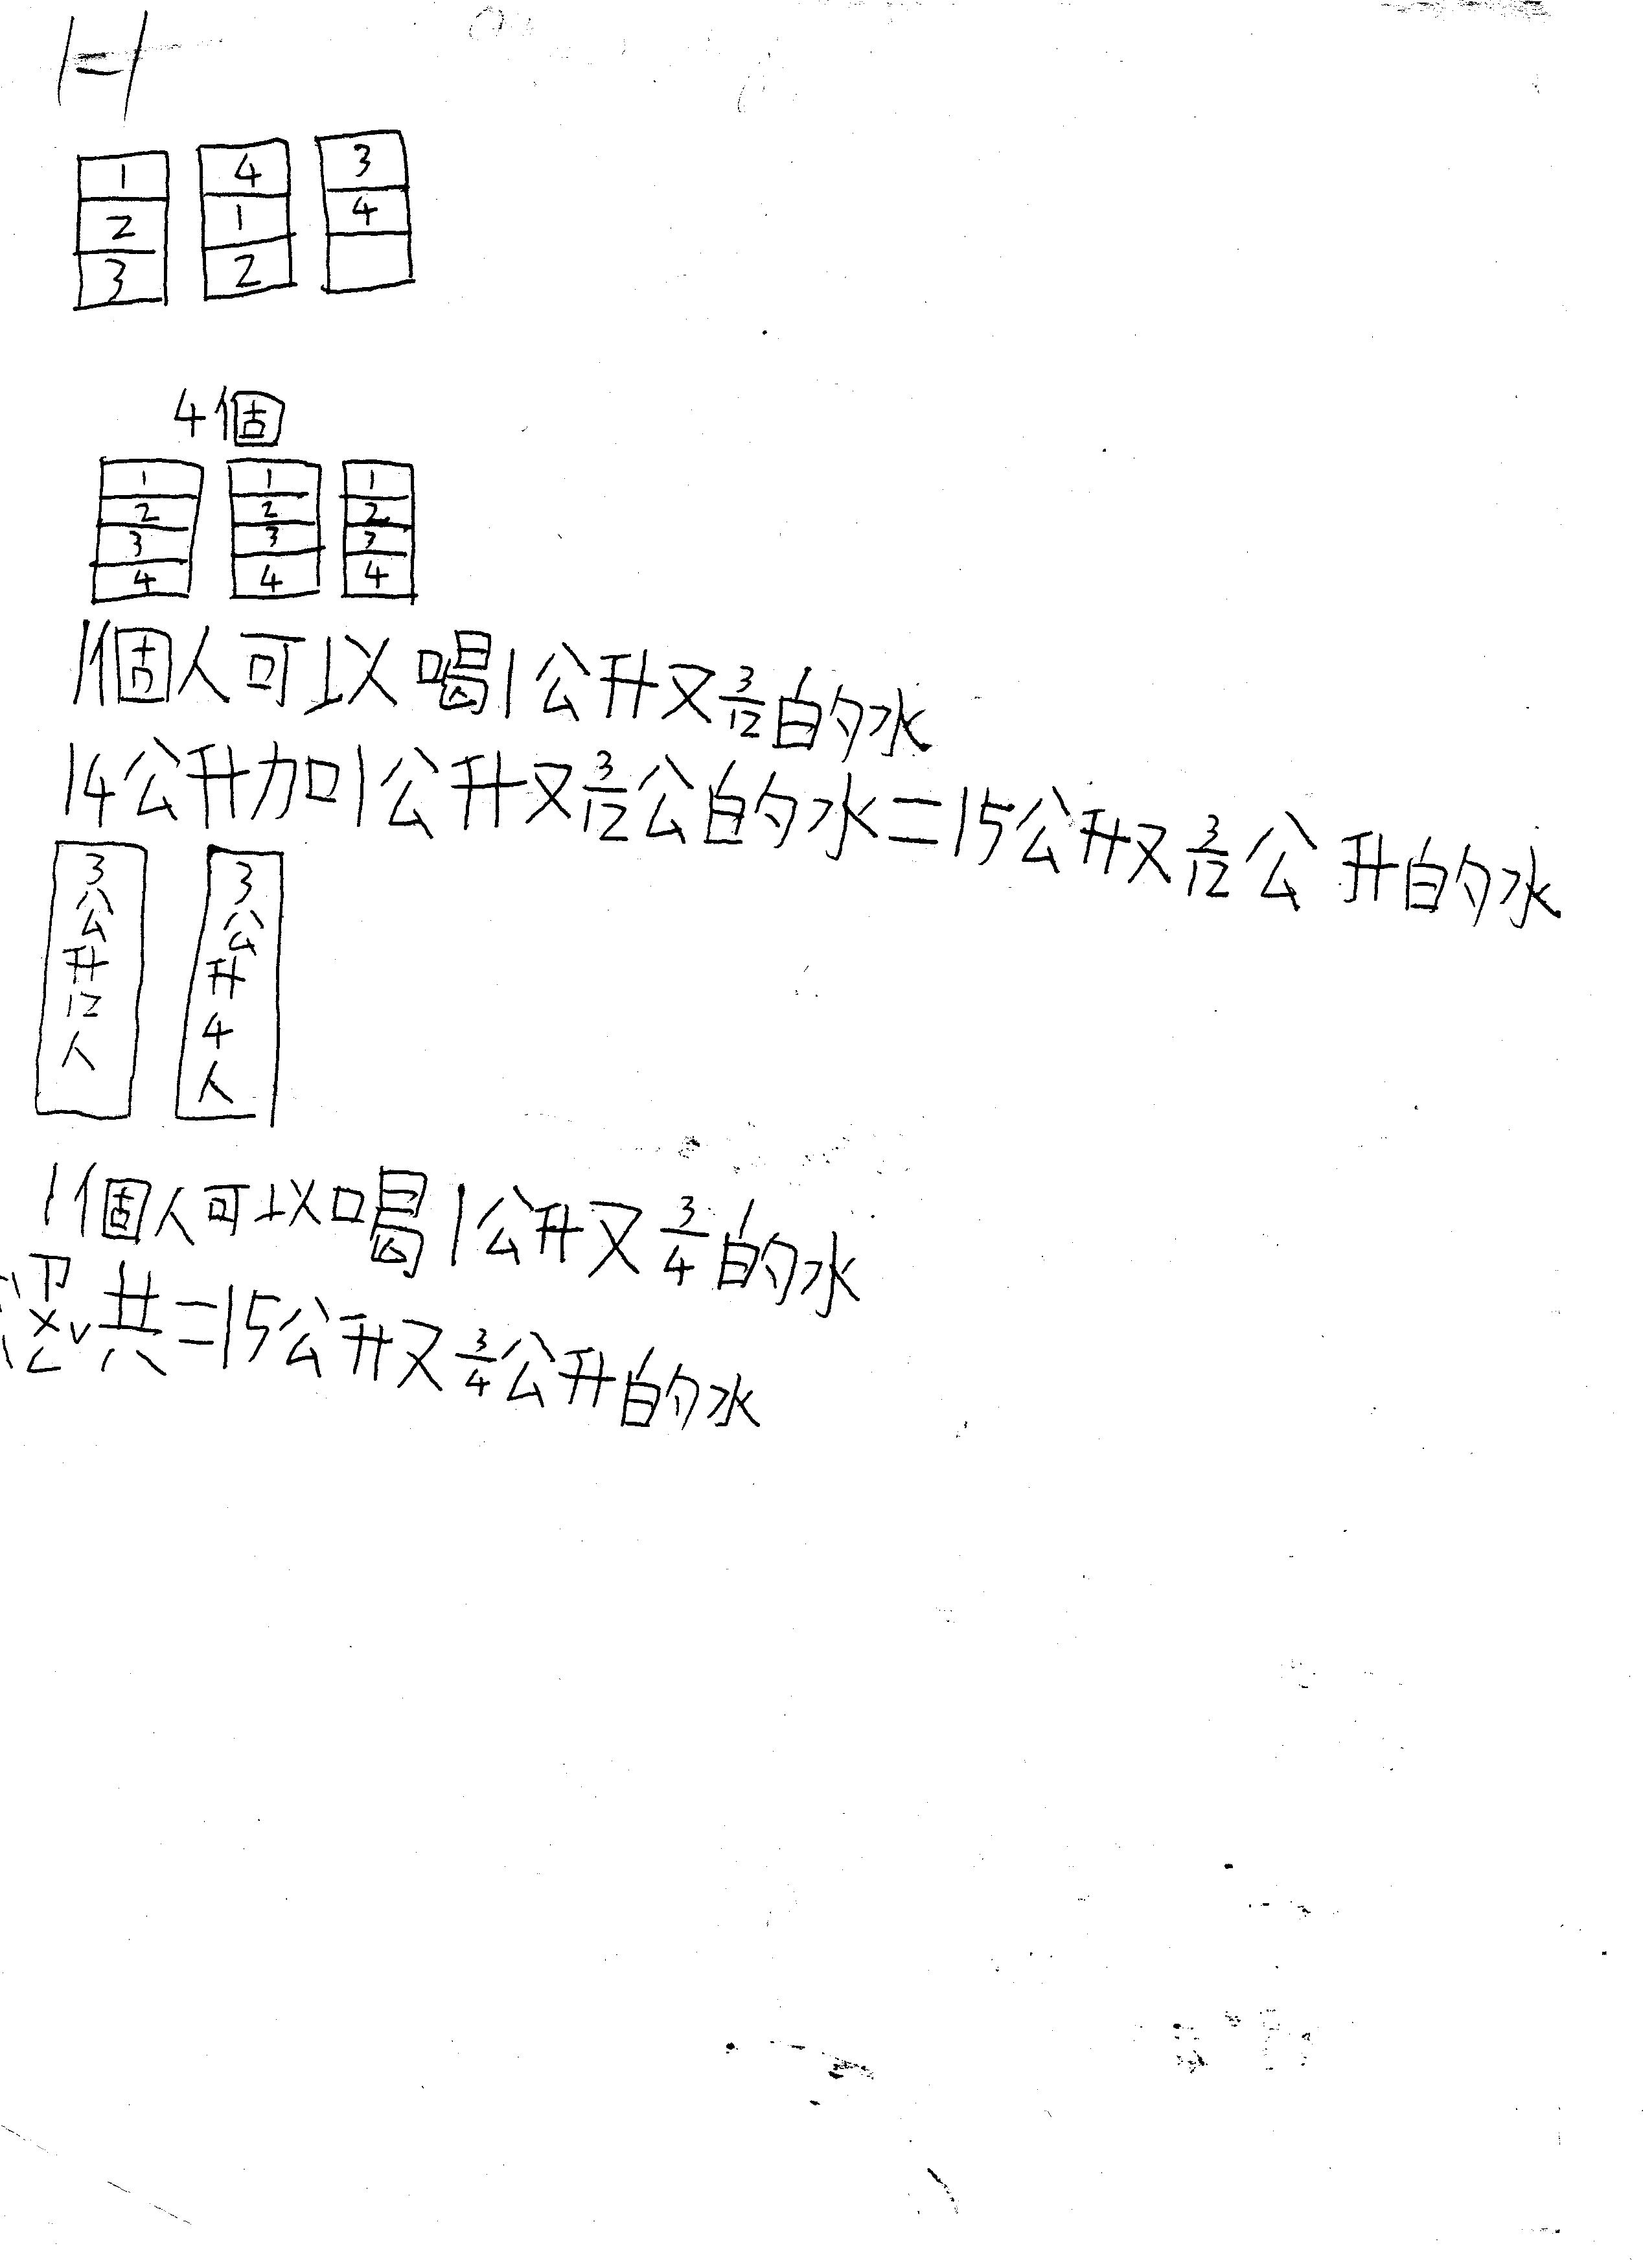 1-1
1 4 3
2 1 4
3 2
4個
1 1 1
2 2 2
3 3 3
4 4 4
1個人可以喝1公升又3/12的水
14公升加1公升又3/12公的水=15公升又3/12公升的水
3公升12人
3公升4人
1個人可以喝1公升又3/4的水
ㄗㄨㄥˇ共=15公升又3/4公升的水